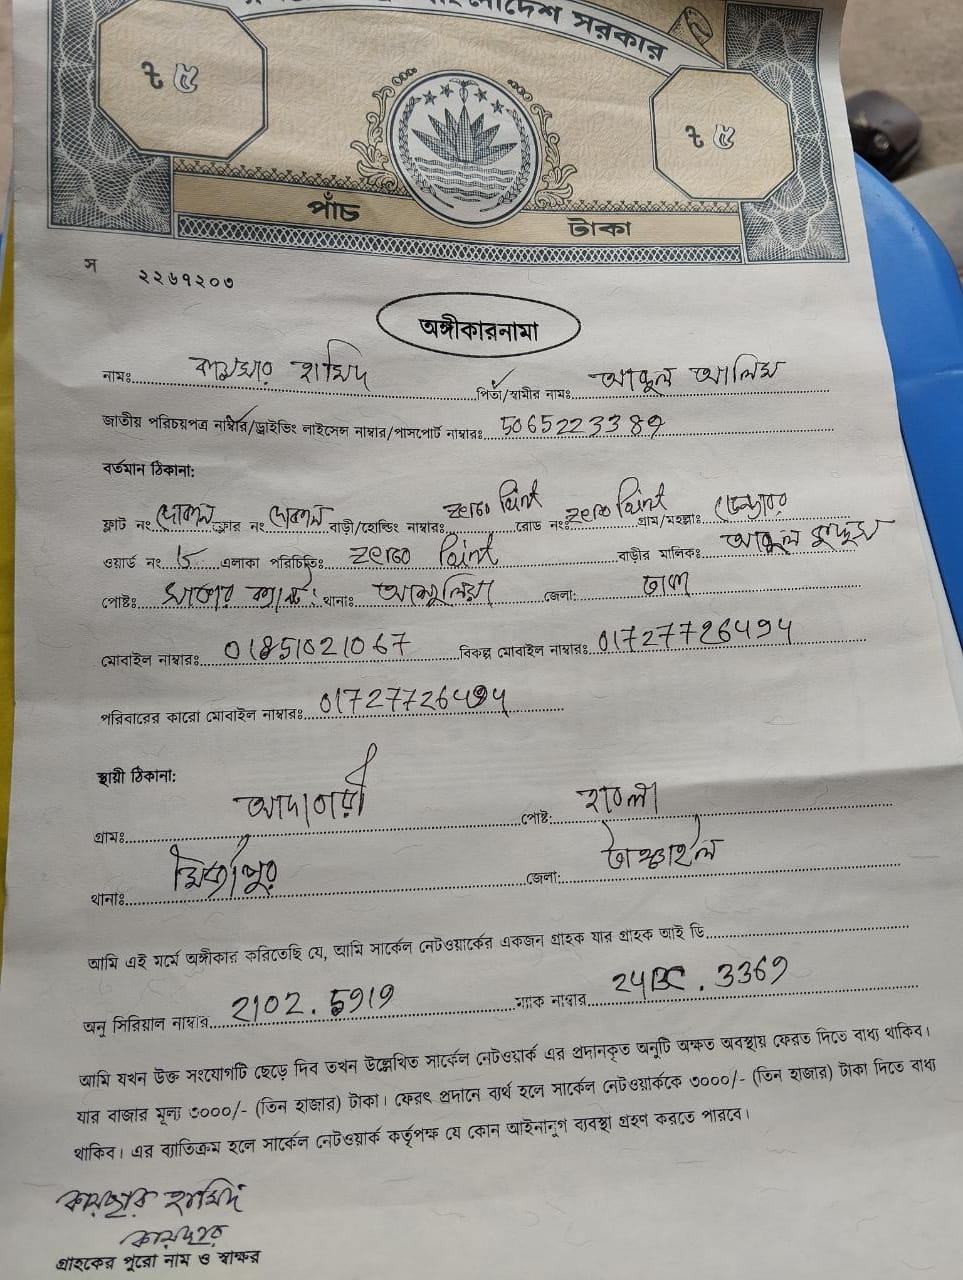 বাংলাদেশ সরকার
৳ ৫
৳ ৫
পাঁচ টাকা
স ২২৬৭২০৩
অঙ্গীকারনামা
নামঃ হামিদ পিতা/স্বামীর নামঃ আব্দুল আলিম
জাতীয় পরিচয়পত্র নাম্বার/ড্রাইভিং লাইসেন্স নাম্বার/পাসপোর্ট নাম্বারঃ 5065223389
বর্তমান ঠিকানা:
ফ্লাট নং দোকান ফ্লোর নং দোকান বাড়ী/হোল্ডিং নাম্বারঃ zero Point রোড নংঃ zero Point গ্রাম/মহল্লাঃ
ওয়ার্ড নং এলাকা পরিচিতিঃ zero Point বাড়ীর মালিকঃ আব্দুল কুদ্দুস
পোষ্টঃ সাভার ক্যান্টঃ থানাঃ আশুলিয়া জেলা: ঢাকা
মোবাইল নাম্বারঃ 01851021067 বিকল্প মোবাইল নাম্বারঃ 01727726494
পরিবারের কারো মোবাইল নাম্বারঃ 01727726494
স্থায়ী ঠিকানা:
গ্রামঃ পোষ্ট:
থানাঃ মির্জাপুর জেলা: টাঙ্গাইল
আমি এই মর্মে অঙ্গীকার করিতেছি যে, আমি সার্কেল নেটওয়ার্কের একজন গ্রাহক যার গ্রাহক আই ডি
অনু সিরিয়াল নাম্বার 2102.5919 ম্যাক নাম্বার 24BC.3369
আমি যখন উক্ত সংযোগটি ছেড়ে দিব তখন উল্লেখিত সার্কেল নেটওয়ার্ক এর প্রদানকৃত অনুটি অক্ষত অবস্থায় ফেরত দিতে বাধ্য থাকিব।
যার বাজার মূল্য ৩০০০/- (তিন হাজার) টাকা। ফেরৎ প্রদানে ব্যর্থ হলে সার্কেল নেটওয়ার্ককে ৩০০০/- (তিন হাজার) টাকা দিতে বাধ্য
থাকিব। এর ব্যাতিক্রম হলে সার্কেল নেটওয়ার্ক কর্তৃপক্ষ যে কোন আইনানুগ ব্যবস্থা গ্রহণ করতে পারবে।
হামিদ
গ্রাহকের পুরো নাম ও স্বাক্ষর